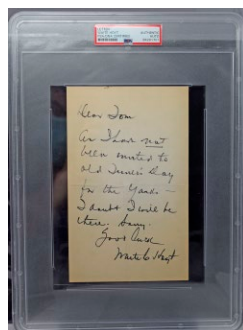 WAITE HOYT
AUTHENTIC
Dear Tom:
As I have not
been invited to
old Timer's Day
for the Yanks –
I doubt I will be
there. Sorry.
Good Luck
Waite Hoyt